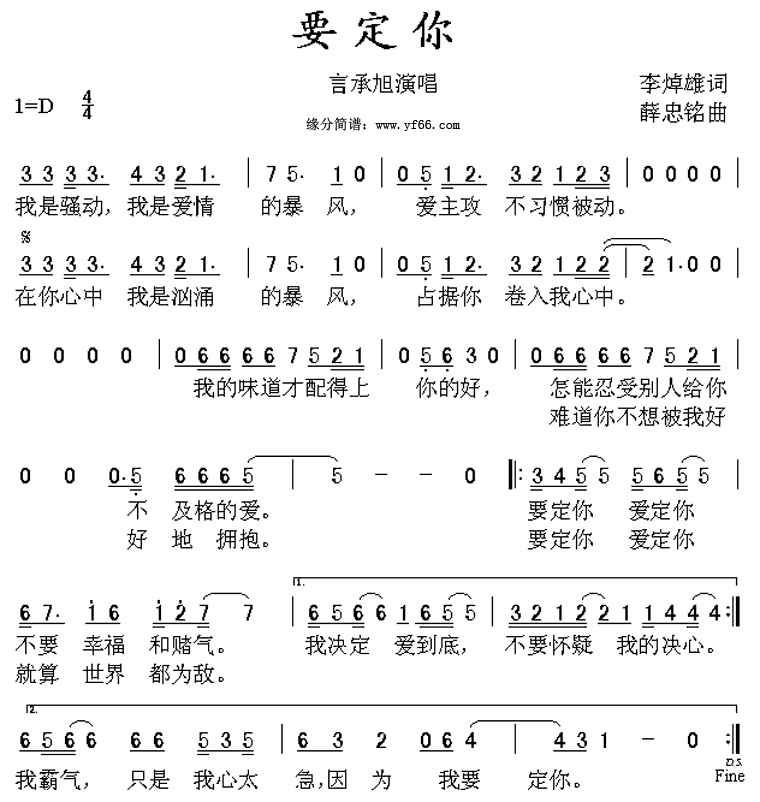 要定你
言承旭演唱 李焯雄词
1=D 4/4 缘分简谱：www.yf66.com 薛忠铭曲
3 3 3 3· 4 3 2 1· | 7 5· 1 0 | 0 5 1 2· 3 2 1 2 3 | 0 0 0 0 |
我是骚动，我是爱情 的暴 风， 爱主攻 不习惯被动。
𝄋
3 3 3 3· 4 3 2 1· | 7 5· 1 0 | 0 5 1 2· 3 2 1 2 2 | 2 1· 0 0 |
在你心中 我是汹涌 的暴 风， 占据你 卷入我心中。
0 0 0 0 | 0 6 6 6 6 7 5 2 1 | 0 5 6 3 0 | 0 6 6 6 6 7 5 2 1 |
我的味道才配得上 你的好， 怎能忍受别人给你
难道你不想被我好
0 0 0· 5 6 6 6 5 | 5 - - 0 |: 3 4 5 5 5 6 5 5 |
不 及格的爱。 要定你 爱定你
好 地 拥抱。 要定你 爱定你
6 7· 1 6 1 2 7 7 | 1. 6 5 6 6 1 6 5 5 | 3 2 1 2 2 1 1 4 4 4 :|
不要 幸福 和赌气。 我决定 爱到底， 不要怀疑 我的决心。
就算 世界 都为敌。
2.
6 5 6 6 6 6 5 3 5 | 6 3 2 0 6 4 | 4 3 1 - 0 :|
D.S.
我霸气， 只是 我心太 急，因 为 我要 定你。 Fine